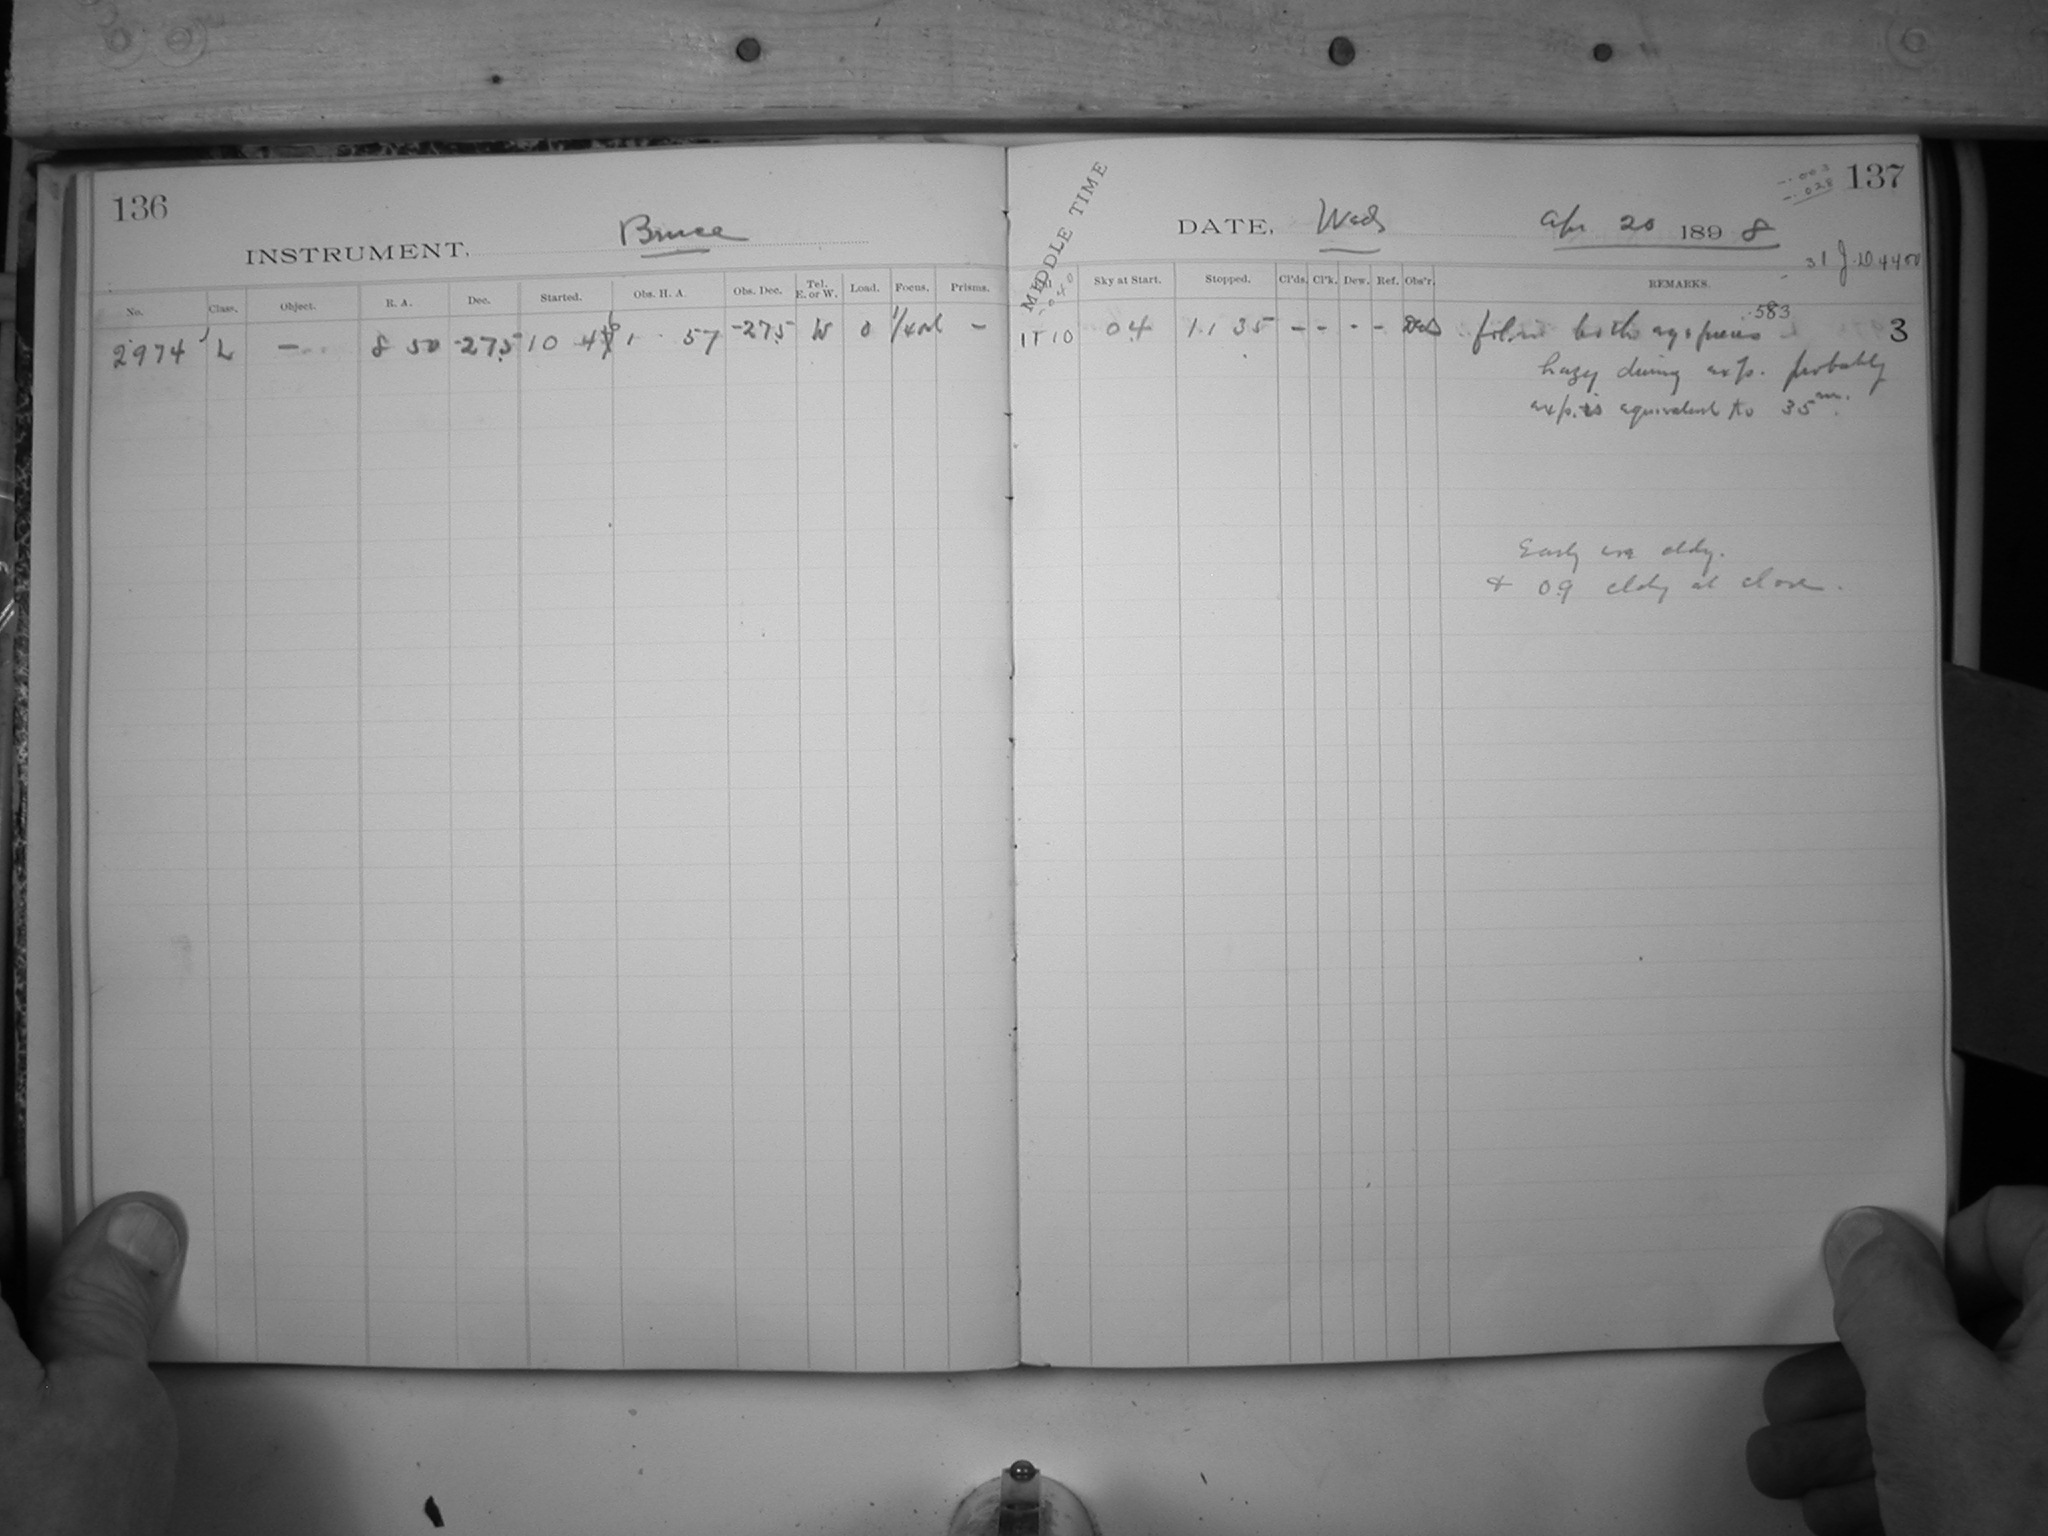 136
INSTRUMENT, Bruce
No. Class. Object. R. A. Dec. Started. Obs. H. A. Obs. Dec. Tel. E. or W. Load. Focus. Prisms.
2974 L — 8 50 -27.5 10 4 1 57 -27.5 W 0 —
137
-.003
-.028
MIDDLE TIME
DATE, Weds Apr 20 1898
31 J.D 4400
Sky at Start. Stopped. Cl'ds. Cl'k. Dew. Ref. Obs'r. REMARKS.
.583
11 10 04 11 35 - - - - films both 3
hazy during exp. probably
exp. is equivalent to 35 m.
Early eve cldy.
& 09 cldy at close.